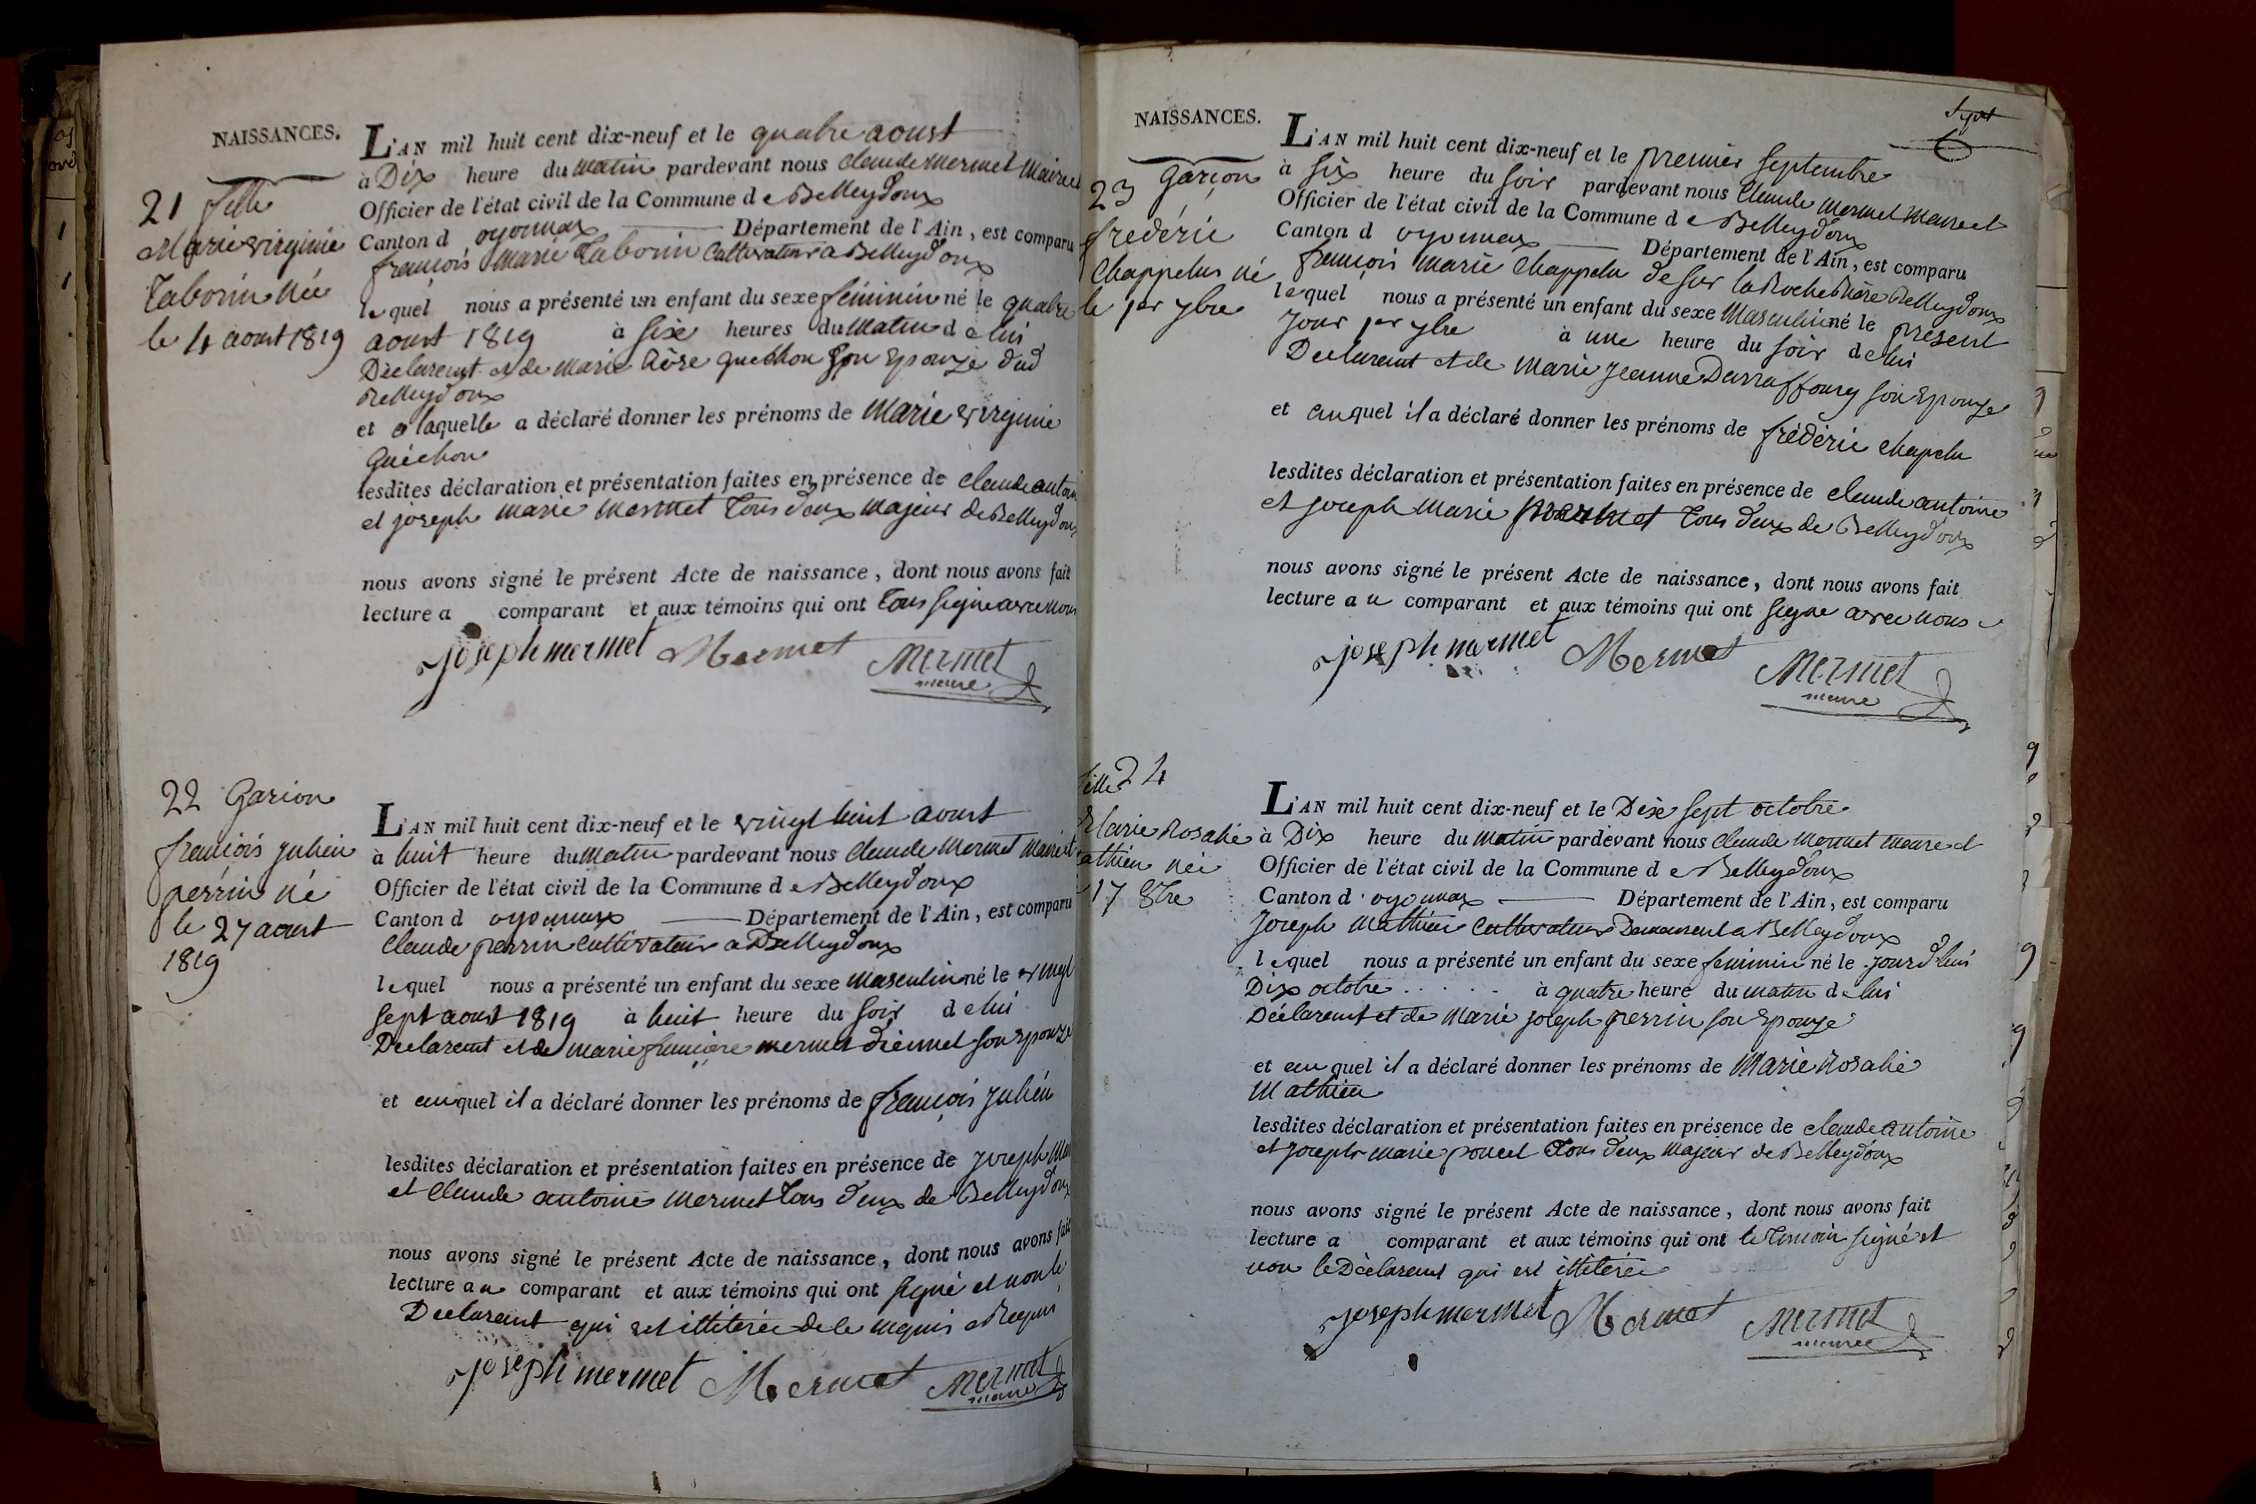 NAISSANCES.
21 fille
Marie virginie
Taborin Née
le 4 aout 1819
L'AN mil huit cent dix-neuf et le quatre aoust
à Dix heure du matin pardevant nous claude mermet Maire et
Officier de l'état civil de la Commune d e Belleydoux
Canton d oyonnax Département de l'Ain, est comparu
françois marie Taborin Cultivateur a Belleydoux
lequel nous a présenté un enfant du sexe féminin né le quatre
aoust 1819 à six heures du matin d e lui
Déclarent et de marie Rose quéchon son Epouze dud
Belleydoux
et a laquelle a déclaré donner les prénoms de Marie virginie
Quéchon
lesdites déclaration et présentation faites en présence de claude antoine
et joseph marie mermet Tous deux majeur de Belleydoux
nous avons signé le présent Acte de naissance, dont nous avons fait
lecture a comparant et aux témoins qui ont Tous signé avec nous
joseph mermet Mermet Mermet
maire
22 Garion
françois julien
perrin né
le 27 aoust
1819
L'AN mil huit cent dix-neuf et le vingt huit aoust
à huit heure du matin pardevant nous claude Mermet Maire et
Officier de l'état civil de la Commune d e Belleydoux
Canton d oyonnax Département de l'Ain, est comparu
Claude perrin cultivateur a Belleydoux
lequel nous a présenté un enfant du sexe masculin né le vingt
sept aoust 1819 à huit heure du soir d e lui
Declarent et de marie françoise mermet diennet son Epouze
et auquel il a déclaré donner les prénoms de françois julién
lesdites déclaration et présentation faites en présence de joseph
et Claude antoine mermet Tous deux de Belleydoux
nous avons signé le présent Acte de naissance, dont nous avons fait
lecture a u comparant et aux témoins qui ont signé et non le
Declarent qui est illitérée de le enquis Requis
joseph mermet Mermet Mermet
maire
NAISSANCES.
Sept
6
23 Garçon
frédéric
Chappelus né
le 1er 7bre
L'AN mil huit cent dix-neuf et le premier septembre
à six heure du soir pardevant nous Claude mermet Maire et
Officier de l'état civil de la Commune d e Belleydoux
Canton d oyonnax Département de l'Ain, est comparu
françois marie Chappelu de sur la Roche Belleydoux
lequel nous a présenté un enfant du sexe Masculin né le présent
jour 1er 7bre à une heure du soir d e lui
Declarent et de marie jeanne Darraffourg son Epouze
et auquel il a déclaré donner les prénoms de frédéric chapelu
lesdites déclaration et présentation faites en présence de claude antoine
et joseph marie mermet Tous deux de Belleydoux
nous avons signé le présent Acte de naissance, dont nous avons fait
lecture a u comparant et aux témoins qui ont signé avec nous
joseph mermet Mermet Mermet
maire
fille 24
Marie Rosalie
athieu née
17 8bre
L'AN mil huit cent dix-neuf et le Dixe sept octobre
à Dix heure du matin pardevant nous Claude Mermet maire et
Officier de l'état civil de la Commune d e Belleydoux
Canton d oyonnax Département de l'Ain, est comparu
Joseph Mathieu Cultivateur Demeurent a Belleydoux
lequel nous a présenté un enfant du sexe feminin né le jourd'hui
Dix octobre à quatre heure du matin d e lui
Déclarent et de marie joseph perrin son Epouze
et auquel il a déclaré donner les prénoms de Marie Rosalie
Mathieu
lesdites déclaration et présentation faites en présence de claude antoine
et joseph marie poncet Tous deux majeur de Belleydoux
nous avons signé le présent Acte de naissance, dont nous avons fait
lecture a comparant et aux témoins qui ont le Temoin signé et
non le Déclarent qui est illitérée
joseph mermet Mermet Mermet
maire